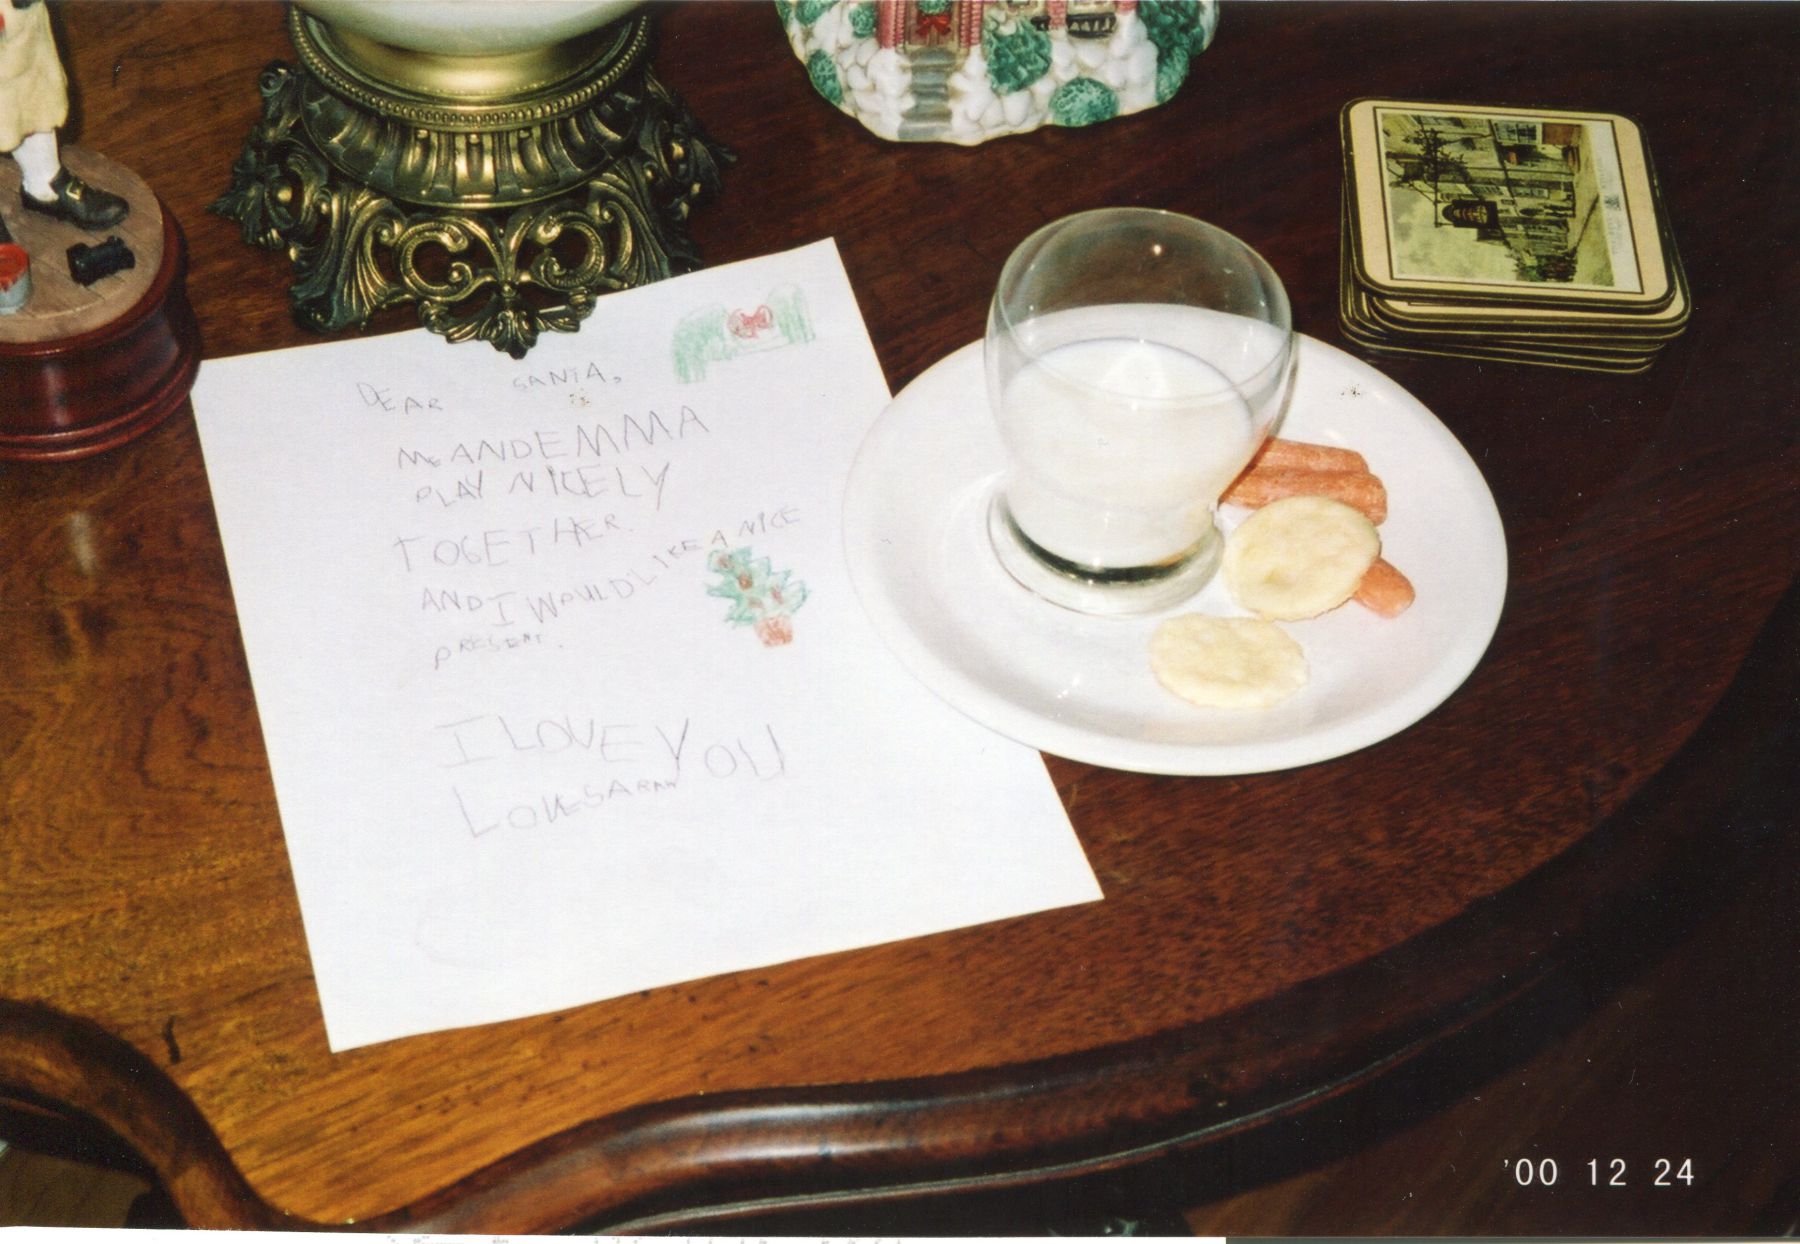 DEAR SANTA,
ME AND EMMA
PLAY NICELY
TOGETHER.
AND I WOULD LIKE A NICE
PRESENT.
I LOVE YOU
LOVE SARAH
'00 12 24